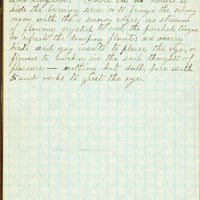 side the burning sun or to fringe the silvery
moon with their snowy edges, no streams
of flowing crystal to cool the parched tongue
or refresh the drooping plants no merry
birds and gay insects to please the eye, no
flowers to awaken in the soul thoughts of
pleasure — nothing but dull, bare earth
and rocks to greet the eye.